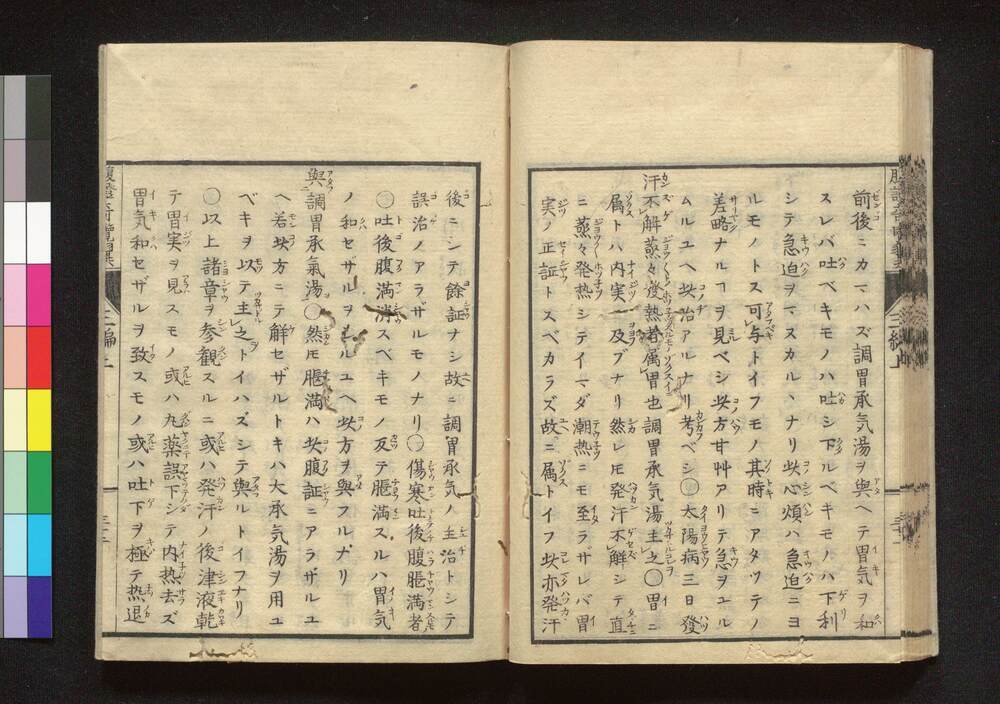 前後ニカヽハズ調胃承気湯ヲ與ヘテ胃気ヲ和
スレバ吐ベキモノハ吐シ下ルベキモノハ下利
シテ急迫ヲマヌカルヽナリ此心煩ハ急迫ニヨ
ルモノトス可与トイフモノ其時ニアタツテノ
差略ナルヿヲ見ベシ此方甘艸アリテ急ヲユル
ムルユヘ此治アルナリ考ベシ○太陽病三日發
汗不解蒸々發熱者属胃也調胃承気湯主之○胃ニ
属トハ内実ニ及ブナリ然レㇳモ発汗不解シテ直
ニ蒸々発熱シテイマダ潮熱ニモ至ラザレバ胃
実ノ正証トスベカラズ故ニ属トイフ此亦発汗
後ニシテ餘証ナシ故ニ調胃承気ノ主治トシテ
誤治ノアラザルモノナリ○傷寒吐後腹脹満者
○吐後腹満消スベキモノ反テ脹満スルハ胃気
ノ和セザルヲシルユヘ此方ヲ與フルナリ
與調胃承氣湯○然ㇳモ脹満ハ此腹証ニアラザルユ
ヘ若此方ニテ解セザルトキハ大承気湯ヲ用ユ
ベキヲ以テ主之トイハズシテ與ルトイフナリ
○以上諸章ヲ参観スルニ或ハ発汗ノ後津液乾
テ胃実ヲ見スモノ或ハ丸薬誤下シテ内熱去ズ
胃気和セザルヲ致スモノ或ハ吐下ヲ極テ熱退